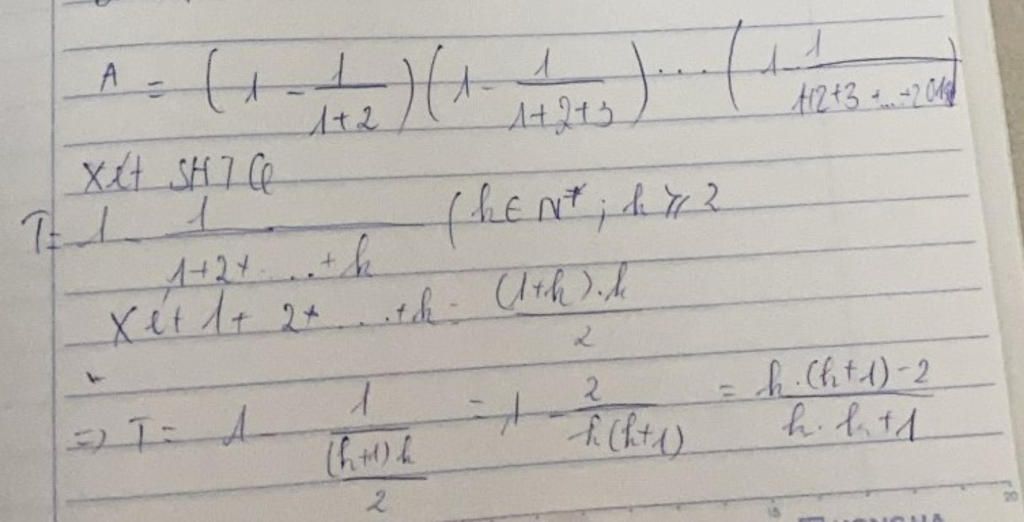 A = (1 - 1/(1+2)) (1 - 1/(1+2+3)) ... (1 - 1/(1+2+3+...+2019))
Xét SHTQ
T = 1 - 1/(1+2+...+k) (k∈N*; k ≥ 2
Xét 1+2+...+k = (1+k).k/2
=> T = 1 - 1/((k+1)k/2) = 1 - 2/(k(k+1)) = (k.(k+1)-2)/(k.k+1)
15 20